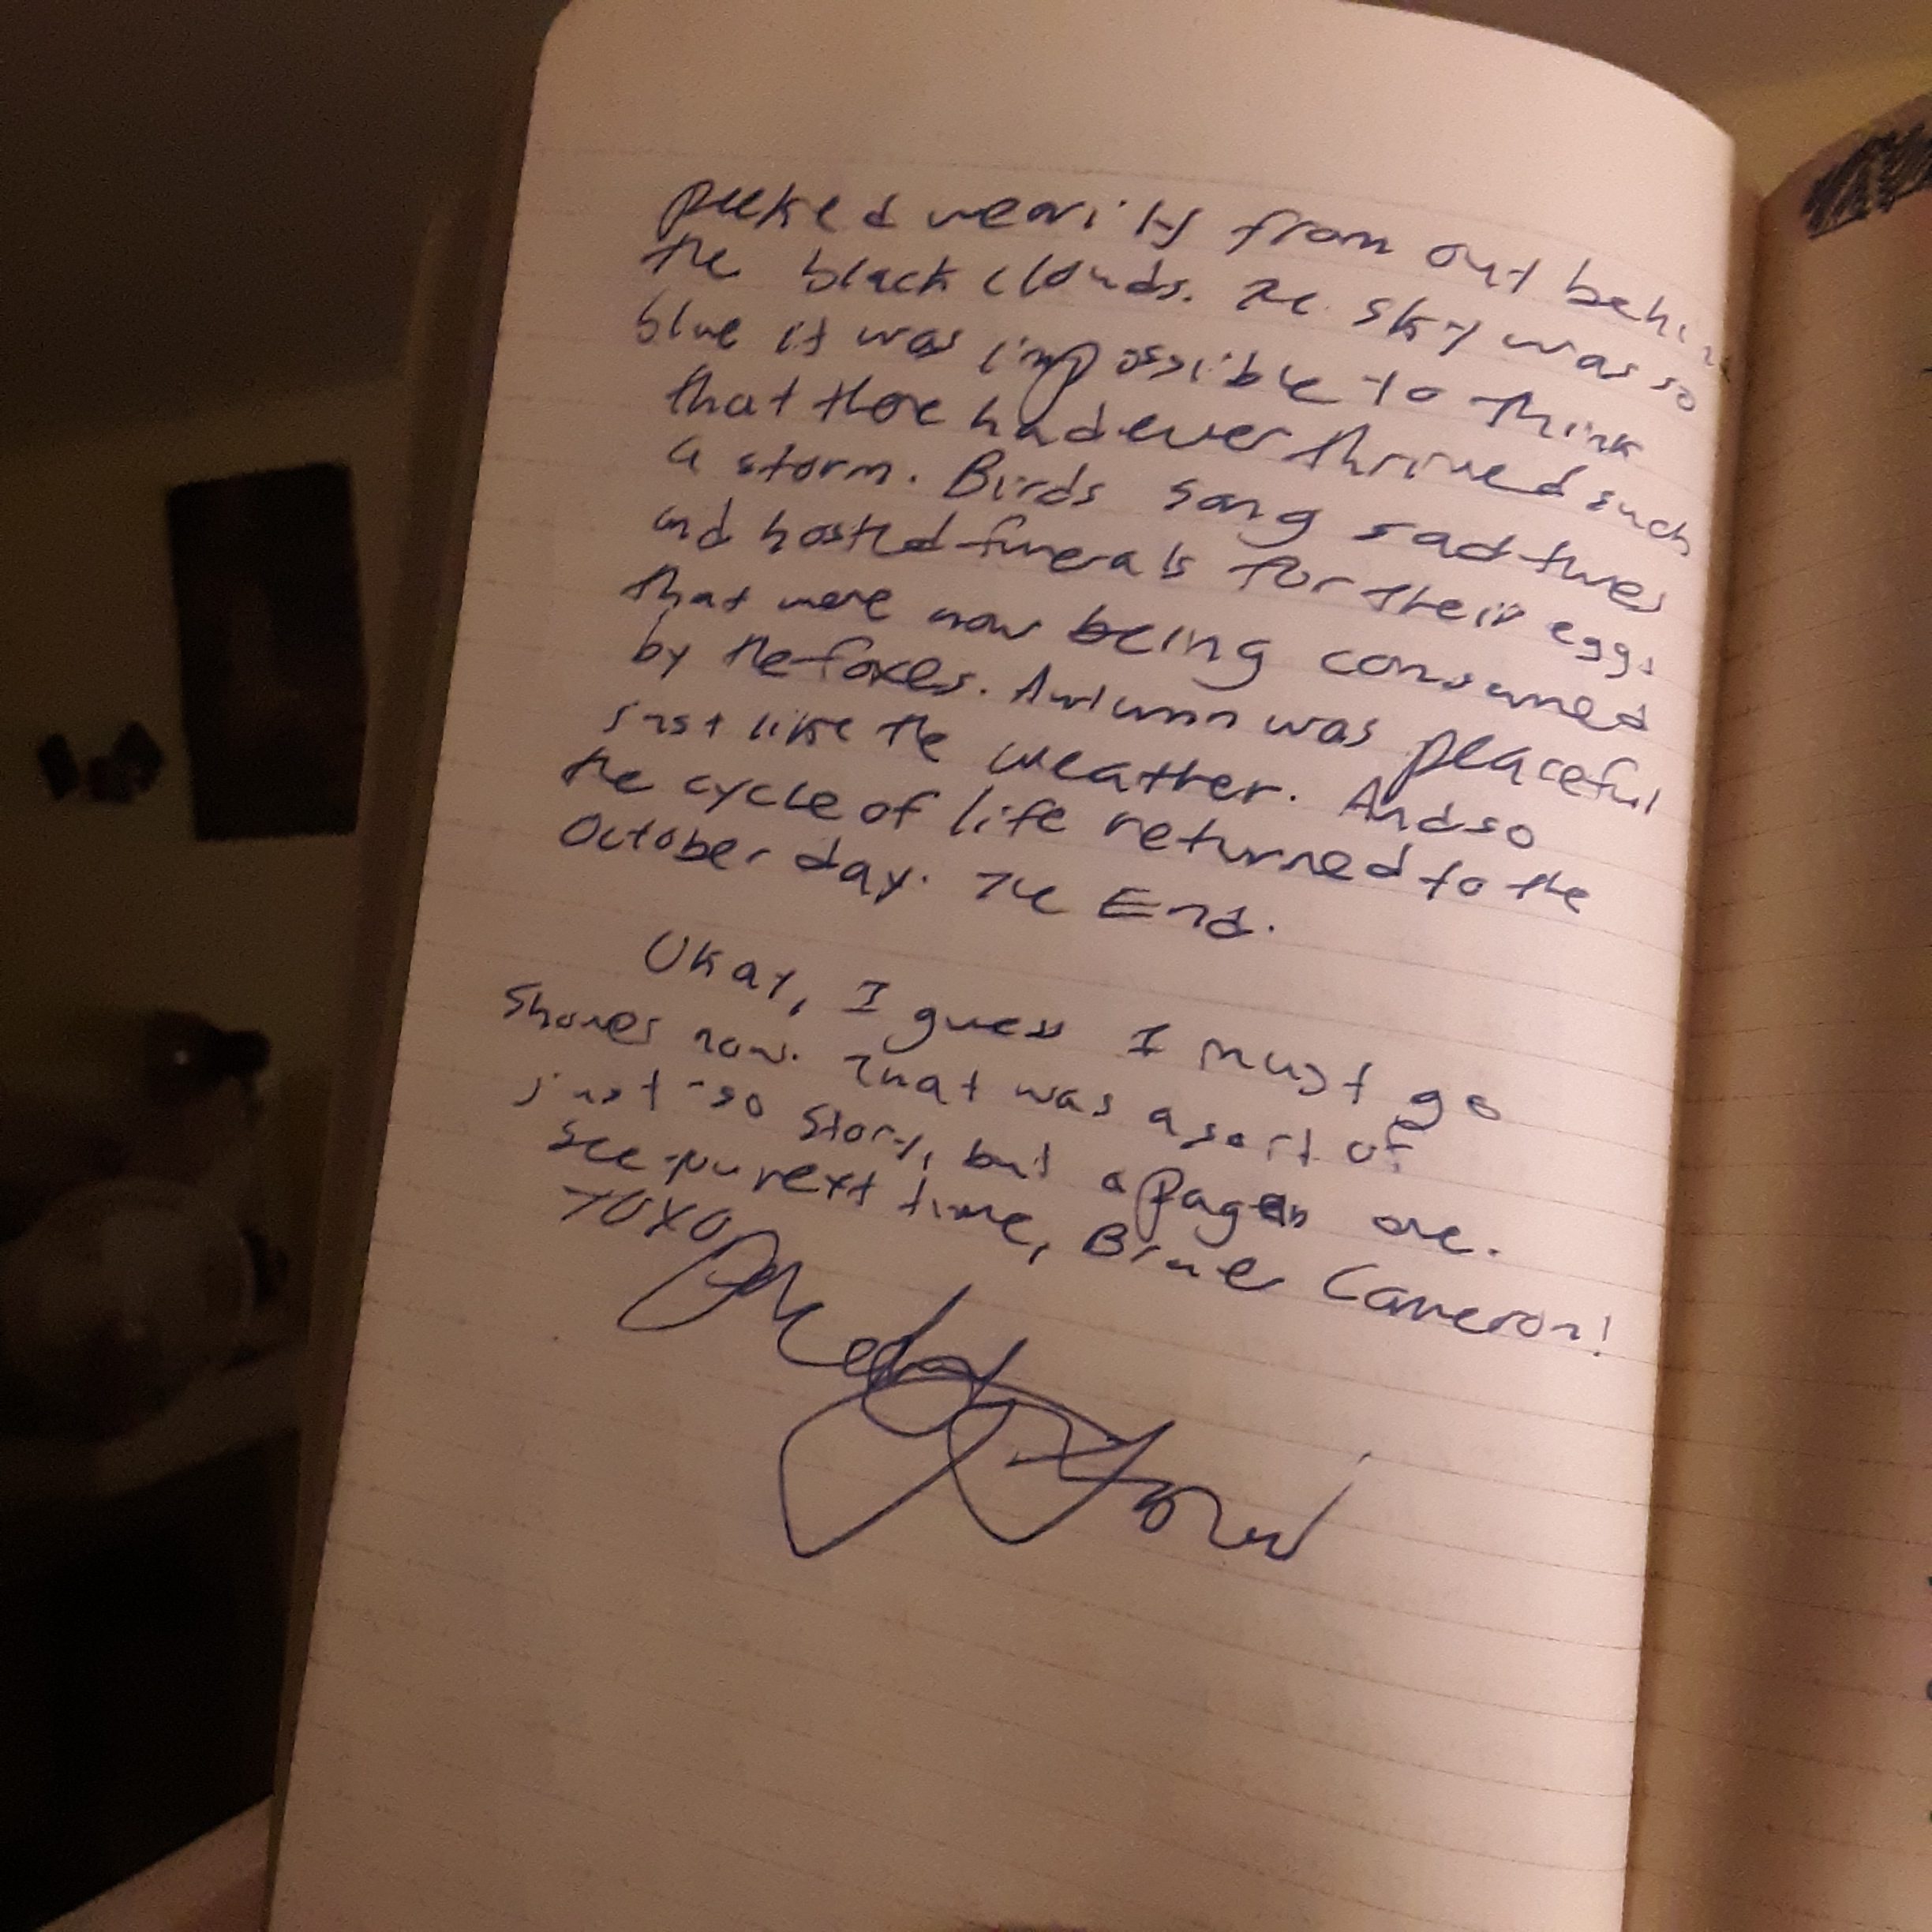 peeked wearily from out behind
the black clouds. The sky was so
blue it was impossible to think
that there had ever thrived such
a storm. Birds sang sad tunes
and hosted funerals for their eggs
that were now being consumed
by the foxes. Autumn was peaceful
just like the weather. And so
the cycle of life returned to the
October day. The End.
Okay, I guess I must go
now. That was a sort of
just-so story, but a pagan one.
See you next time, Cameron!
XOXO